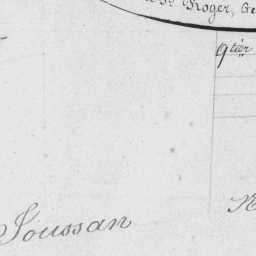 Roger, Ge
9tier
Soussan